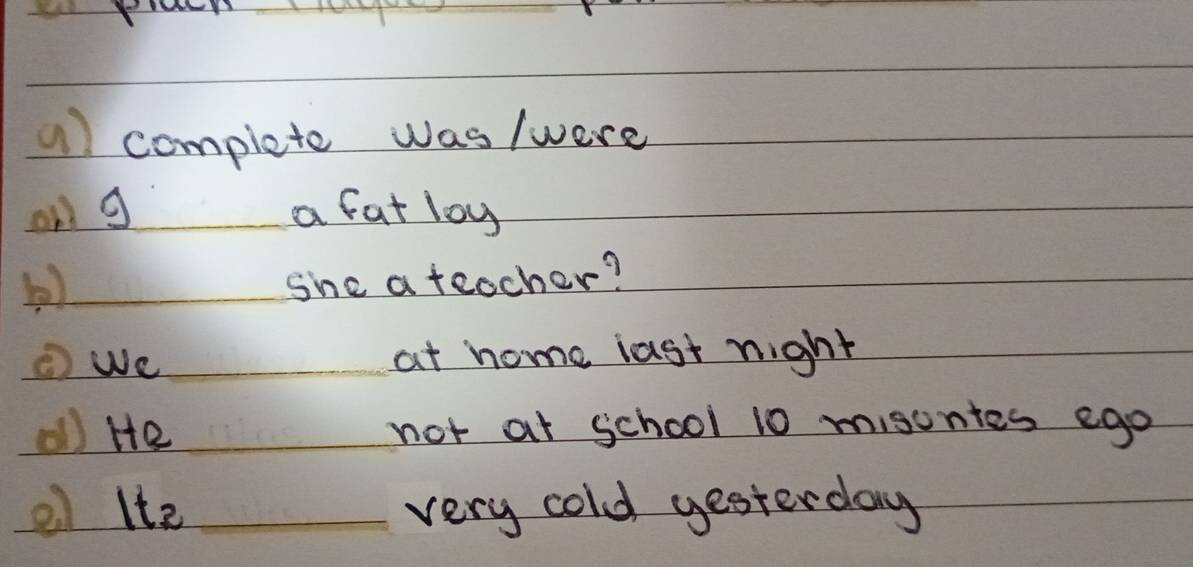 a) complete was/were
a) g a fat loy
b) she a teocher?
c) We at home last night
d) He not at school 10 misontes ego
e) Itz very cold yesterday